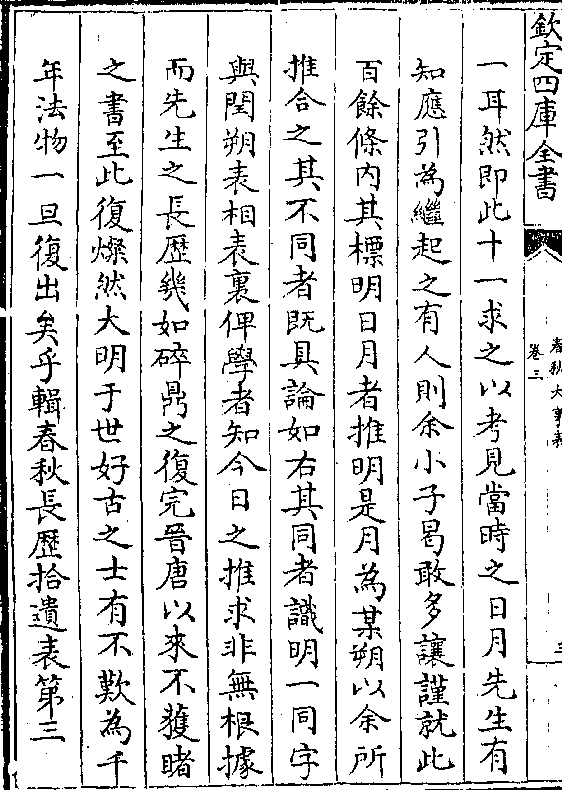 欽定四庫全書
春秋大事表
卷三
三
一耳然即此十一求之以考見當時之日月先生有
知應引為繼起之有人則余小子曷敢多讓謹就此
百餘條內其標明日月者推明是月為某朔以余所
推合之其不同者既具論如右其同者識明一同字
與閏朔表相表裏俾學者知今日之推求非無根據
而先生之長歷幾如碎鼎之復完晉唐以來不獲睹
之書至此復燦然大明于世好古之士有不歎為千
年法物一旦復出矣乎輯春秋長歷拾遺表第三